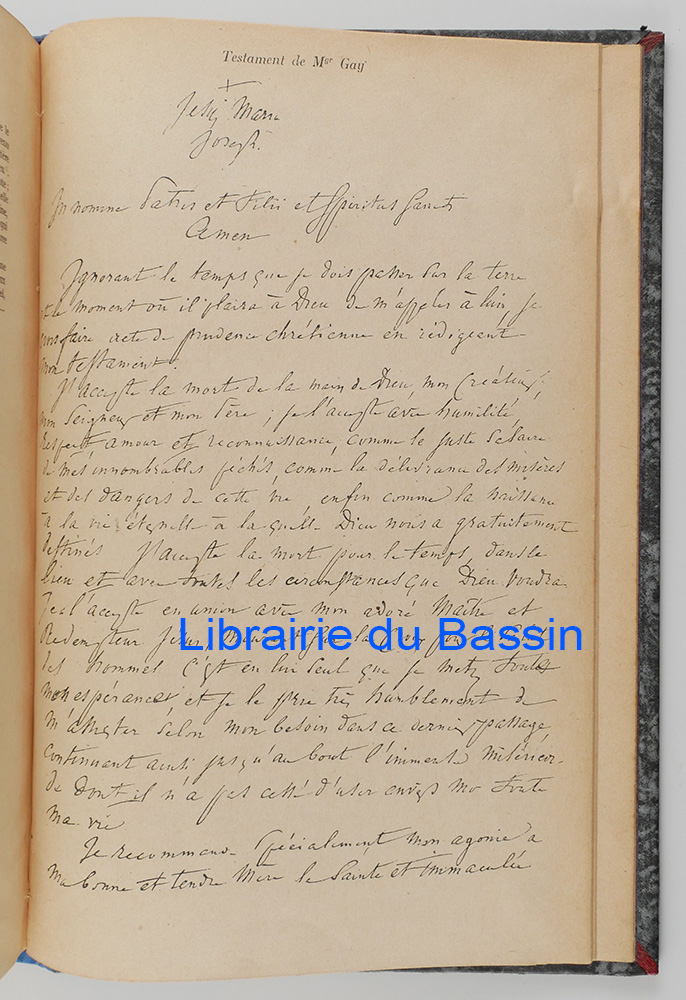 Testament de Mgr Gay
+
Jesus Maria
Joseph.
In nomine Patris et Filii et Spiritus Sancti
Amen
Ignorant le temps que je dois passer sur la terre
et le moment où il plaira à Dieu de m'appeler à lui, je
crois faire acte de prudence chrétienne en rédigeant
mon testament.
J'accepte la mort de la main de Dieu, mon Créateur,
mon Seigneur et mon Père; je l'accepte avec humilité,
respect, amour et reconnaissance, comme le juste salaire
de mes innombrables péchés, comme la délivrance des misères
et des dangers de cette vie, enfin comme la naissance
à la vie éternelle à laquelle Dieu nous a gratuitement
destinés. J'accepte la mort pour le temps, dans le
lieu et avec toutes les circonstances que Dieu voudra.
Je l'accepte en union avec mon adoré Maître et
Rédempteur Jésus, mourant sur la
Librairie du Bassin
des hommes. C'est en lui seul que je mets toute
mon espérance, et je le prie très humblement de
m'assister selon mon besoin dans ce dernier passage,
continuant ainsi jusqu'au bout l'immense miséricor-
de dont il n'a pas cessé d'user envers moi toute
ma vie
Je recommande spécialement mon agonie à
ma bonne et tendre Mère la Sainte et immaculée